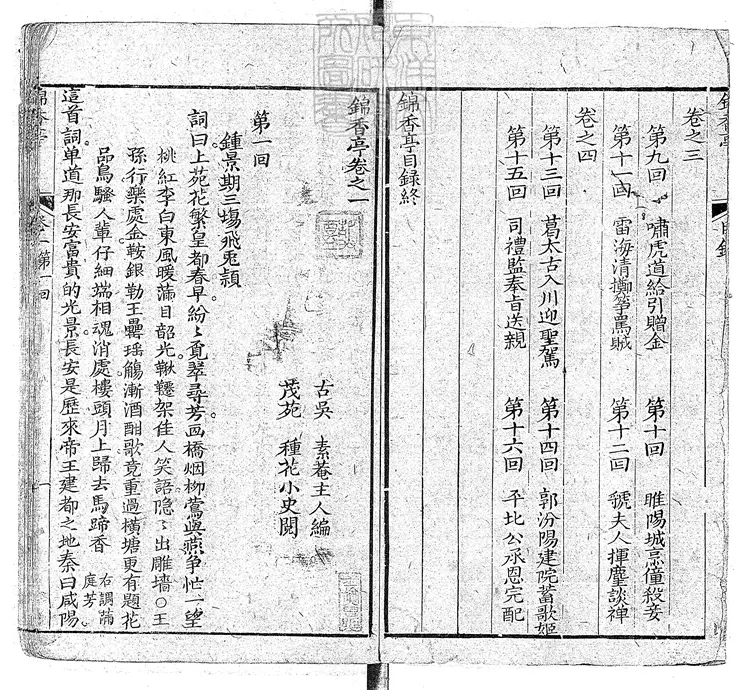 錦香亭 目錄
卷之三
第九回 嘯虎道給引贈金 第十回 睢陽城烹僮殺妾
第十一回 雷海清擲箏罵賊 第十二回 虢夫人揮麈談禪
卷之四
第十三回 葛太古入川迎聖駕 第十四回 郭汾陽建院蓄歌姬
第十五回 司禮監奉旨送親 第十六回 平北公承恩完配
錦香亭目錄終
錦香亭卷之一
古吳 素菴主人編
茂苑 種花小史閱
第一回
鍾景期三場飛兎穎
詞曰上苑花繁皇都春早紛〻覓翠尋芳画橋烟柳鶯與燕争忙一望
桃紅李白東風暖滿目韶光鞦韆架佳人笑語隐〻出雕墻○王
孫行樂處金鞍銀勒玉罍瑶觴漸酒酣歌竟重過橫塘更有題花
品鳥騷人輩仔細端相魂消處樓頭月上歸去馬蹄香 右調滿庭芳
這首詞单道那長安富貴的光景長安是歷來帝王建都之地秦曰咸陽
錦香亭 卷一第一回 一